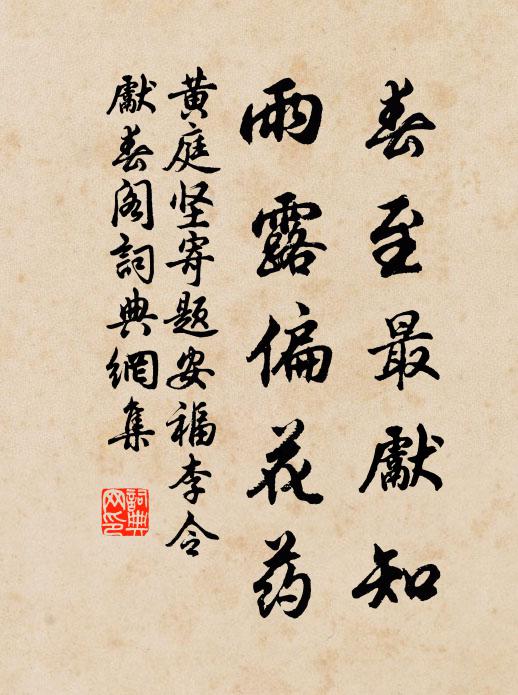 春至最獻知
雨露偏花药
黄庭坚寄题安福李令
獻春阁詞典網集
詞典
网印